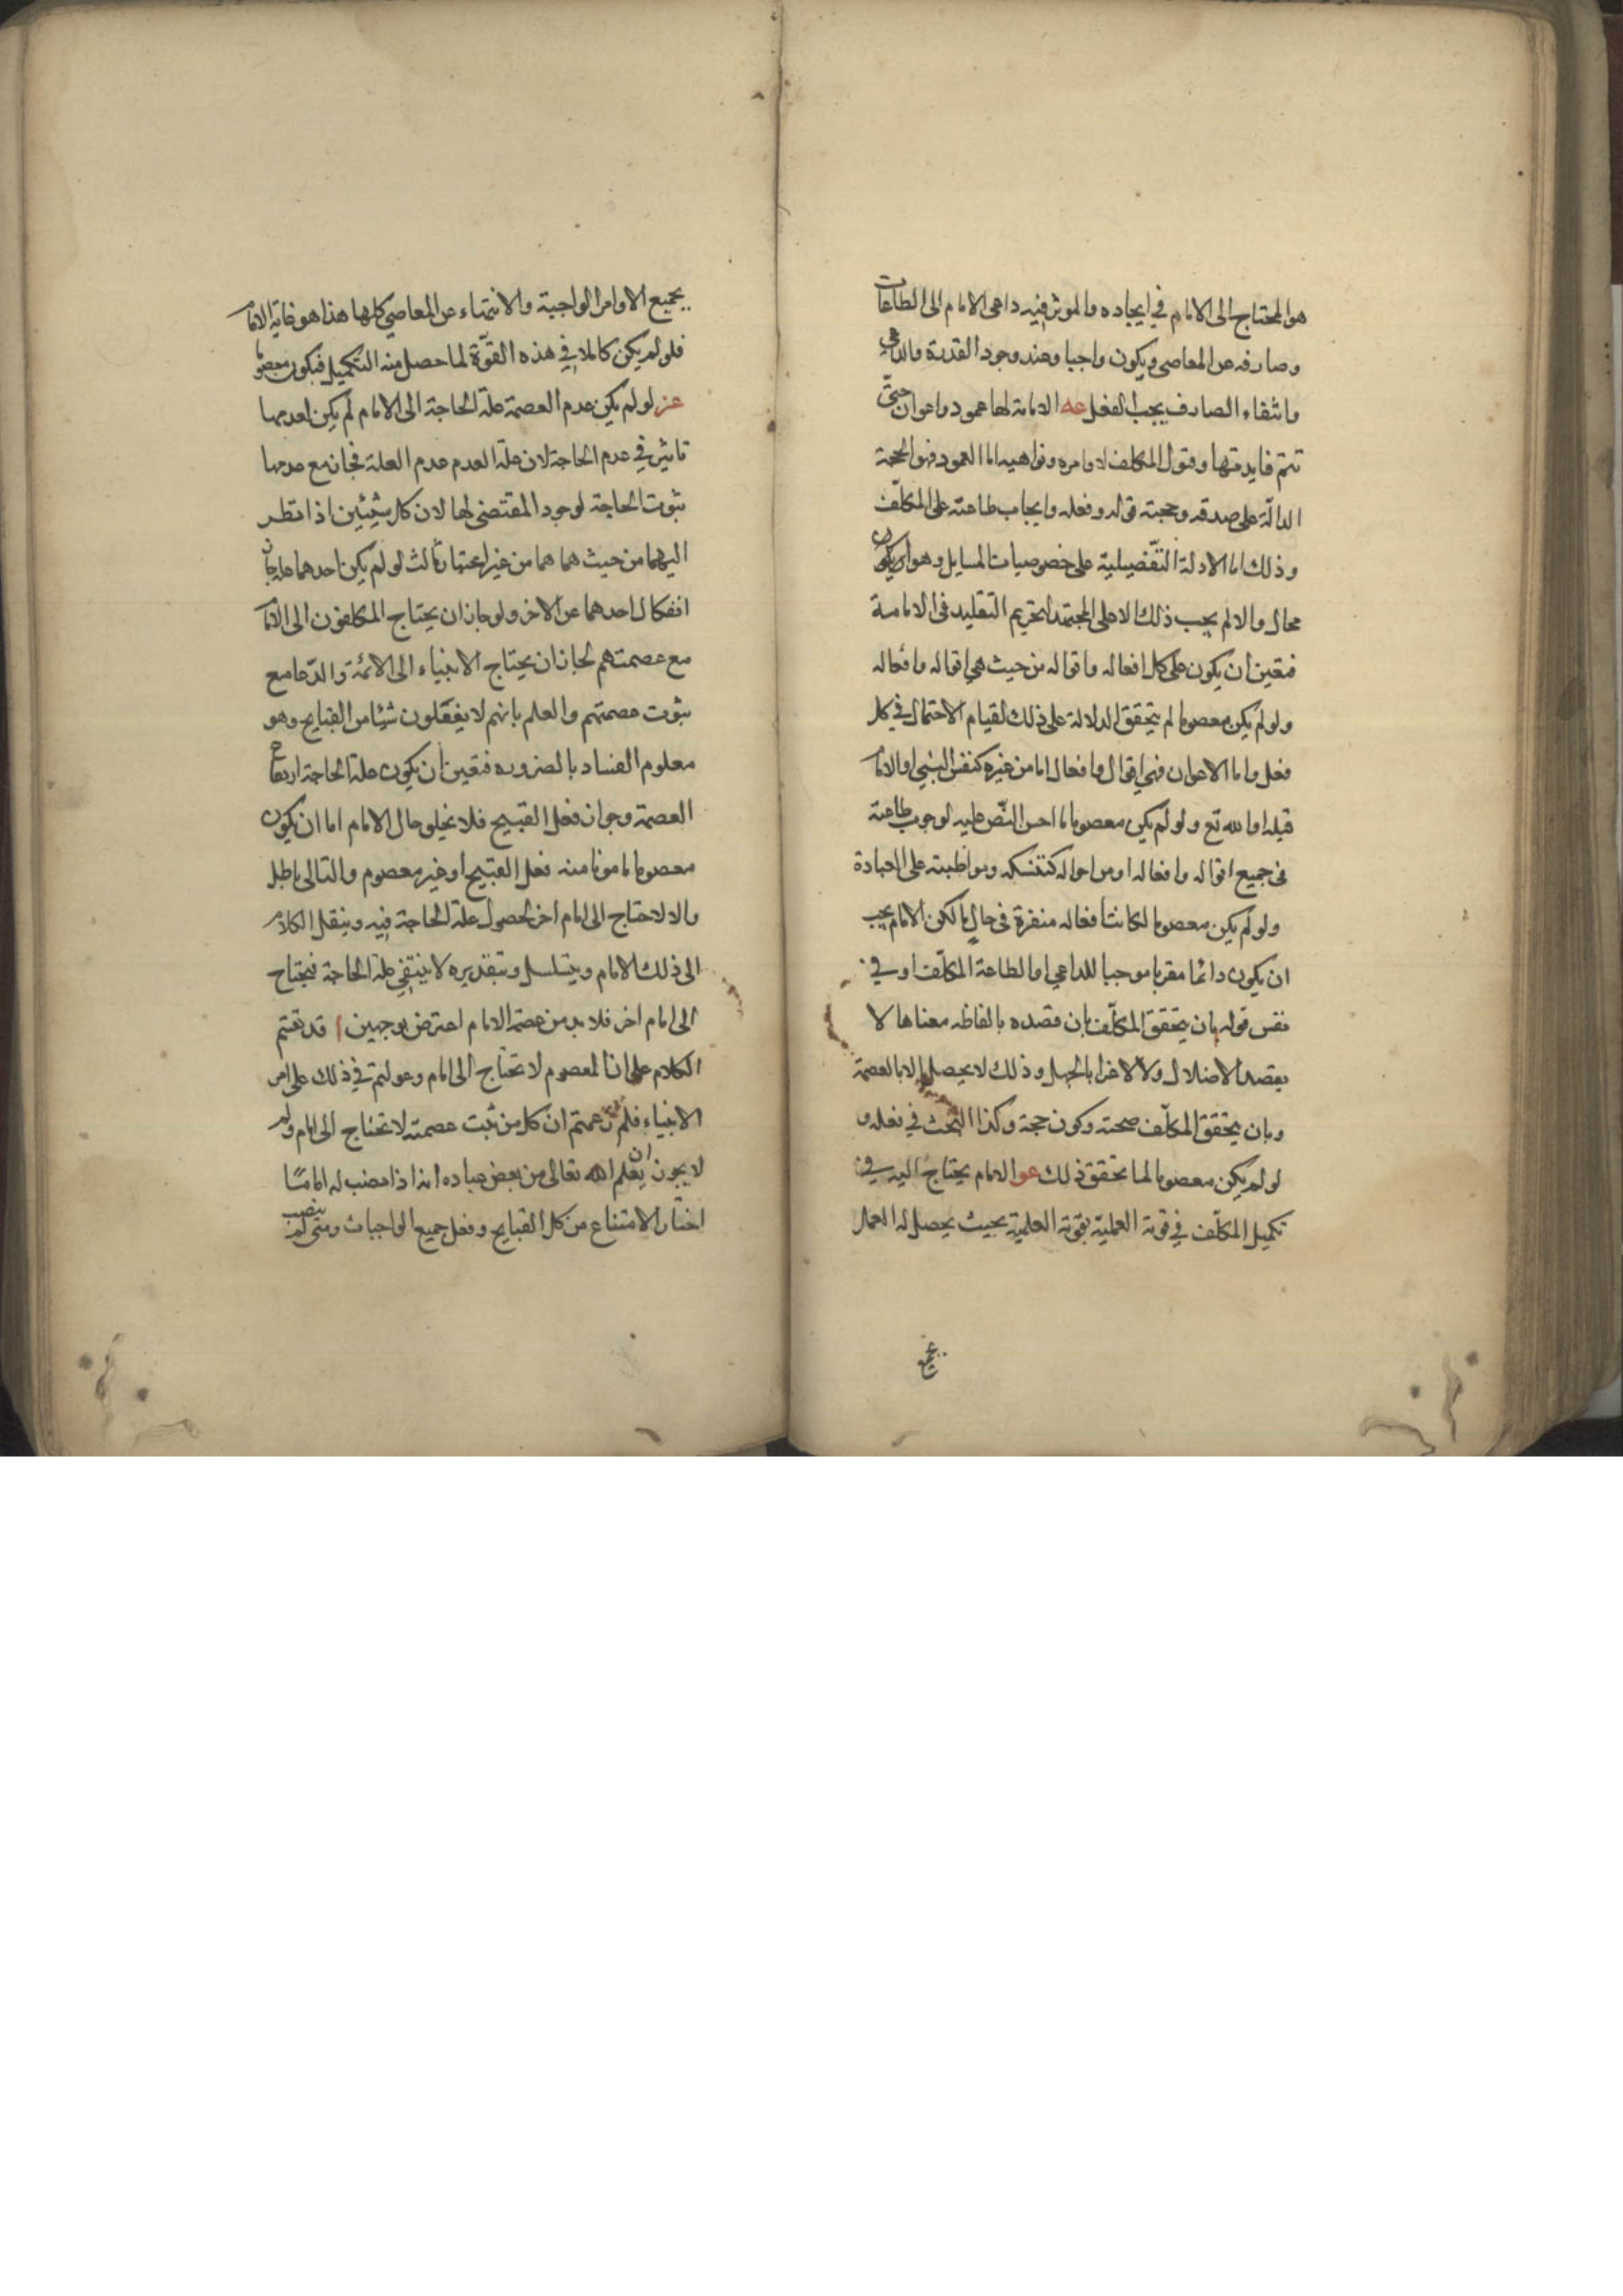 هو المحتاج الى الامام في ايجاده والموثر فيه داعى الامام الى الطاعات
وصارفه عن المعاصى ويكون واجبا وعند وجود القدرة والداعي
وانتفاء الصارف يجب الفعل عه الامامة لها عمود واعوان حتى
تتم فايدتها وقبول المكلف لاوامره ونواهيه اما العمود فهو الحجة
الدالّة على صدقه وحجية قوله وفعله وايجاب طاعته على المكلّف
وذلك اما الادلة التفضيلية على خصوصيات المسايل وهو
محال والا لم يجب ذلك الا على المجتهد لتحريم التقليد في الامامة
فتعين ان يكون على كل افعاله واقواله من حيث هي اقواله وافعاله
ولو لم يكن معصوما لم يتحقق الدلالة على ذلك لقيام الاحتمال في كل
فعل واما الاعوان فهي اقوال وافعال اما من غيره كنفس النبي او الامام
قبله او الله تع ولو لم يكن معصوما لما احسن النّص عليه لوجوب طاعته
في جميع اقواله وافعاله او من احواله كتنسكه ومواظبته على العبادة
ولو لم يكن معصوما لكانت افعاله منفرة في حال ما لكن الامام يجب
ان يكون دائما مقربا موجبا للداعي الطاعة المكلّف او في
نفس قوله بان يتحقق المكلّف بان قصده بالفاظه معناها لا
يقصد الاضلال ولا الاغرا بالجهل وذلك لا يحصل الا بالعصمة
وبان يتحقق المكلّف صحته وكونه حجة وكذا البحث في فعله و
لو لم يكن معصوما لما تحقق ذلك عو الامام يحتاج اليه في
تكميل المكلّف في قوته العملية بقوته العلمية بحيث يحصل له العمل
بجميع
بجميع الاوامر الواجبة والانتهاء عن المعاصي كلها هذا هو غاية الامام
فلو لم يكن كاملا في هذه القوّة لما حصل منه التكميل فيكون معصوما
عز لو لم يكن عدم العصمة علة الحاجة الى الامام لم يكن لعدمها
تاثير في عدم الحاجة لان علة العدم عدم العلة فجاز مع عدمها
ثبوت الحاجة لوجود المقتضى لها لان كل شيئين اذا نظر
اليهما من حيث هما هما من غير اعتبار ثالث لو لم يكن احدهما علة جاز
انفكاك احدهما عن الاخر ولو جاز ان يحتاج المكلفون الى الامام
مع عصمتهم لجاز ان يحتاج الانبياء الى الائمة والدّعا مع
ثبوت عصمتهم والعلم بانهم لا يفعلون شيئا من القبايح وهو
معلوم الفساد بالضروره فتعين ان يكون علة الحاجة ارتفاع
العصمة وجواز فعل القبيح فلا يخلو حال الامام اما ان يكون
معصوما مامونا منه فعل القبيح او غير معصوم والتالى باطل
والا لاحتاج الى امام اخر لحصول علة الحاجة فيه وينقل الكلام
الى ذلك الامام ويتسلسل وبتقديره لا ينتفي علة الحاجة فيحتاج
الى امام اخر فلا بد من عصمة الامام اعترض بوجهين ا قد
الكلام على ان المعصوم لا تحتاج الى امام وعولتم في ذلك على امر
الانبياء فلم زعمتم ان كل من ثبت عصمته لا تحتاج الى امام ولم
لا يجوز ان يعلم الله تعالى من بعض عباده انه اذا نصب له اماما
اختار الامتناع من كل القبايح وفعل جميع الواجبات ومتى لم ينصب